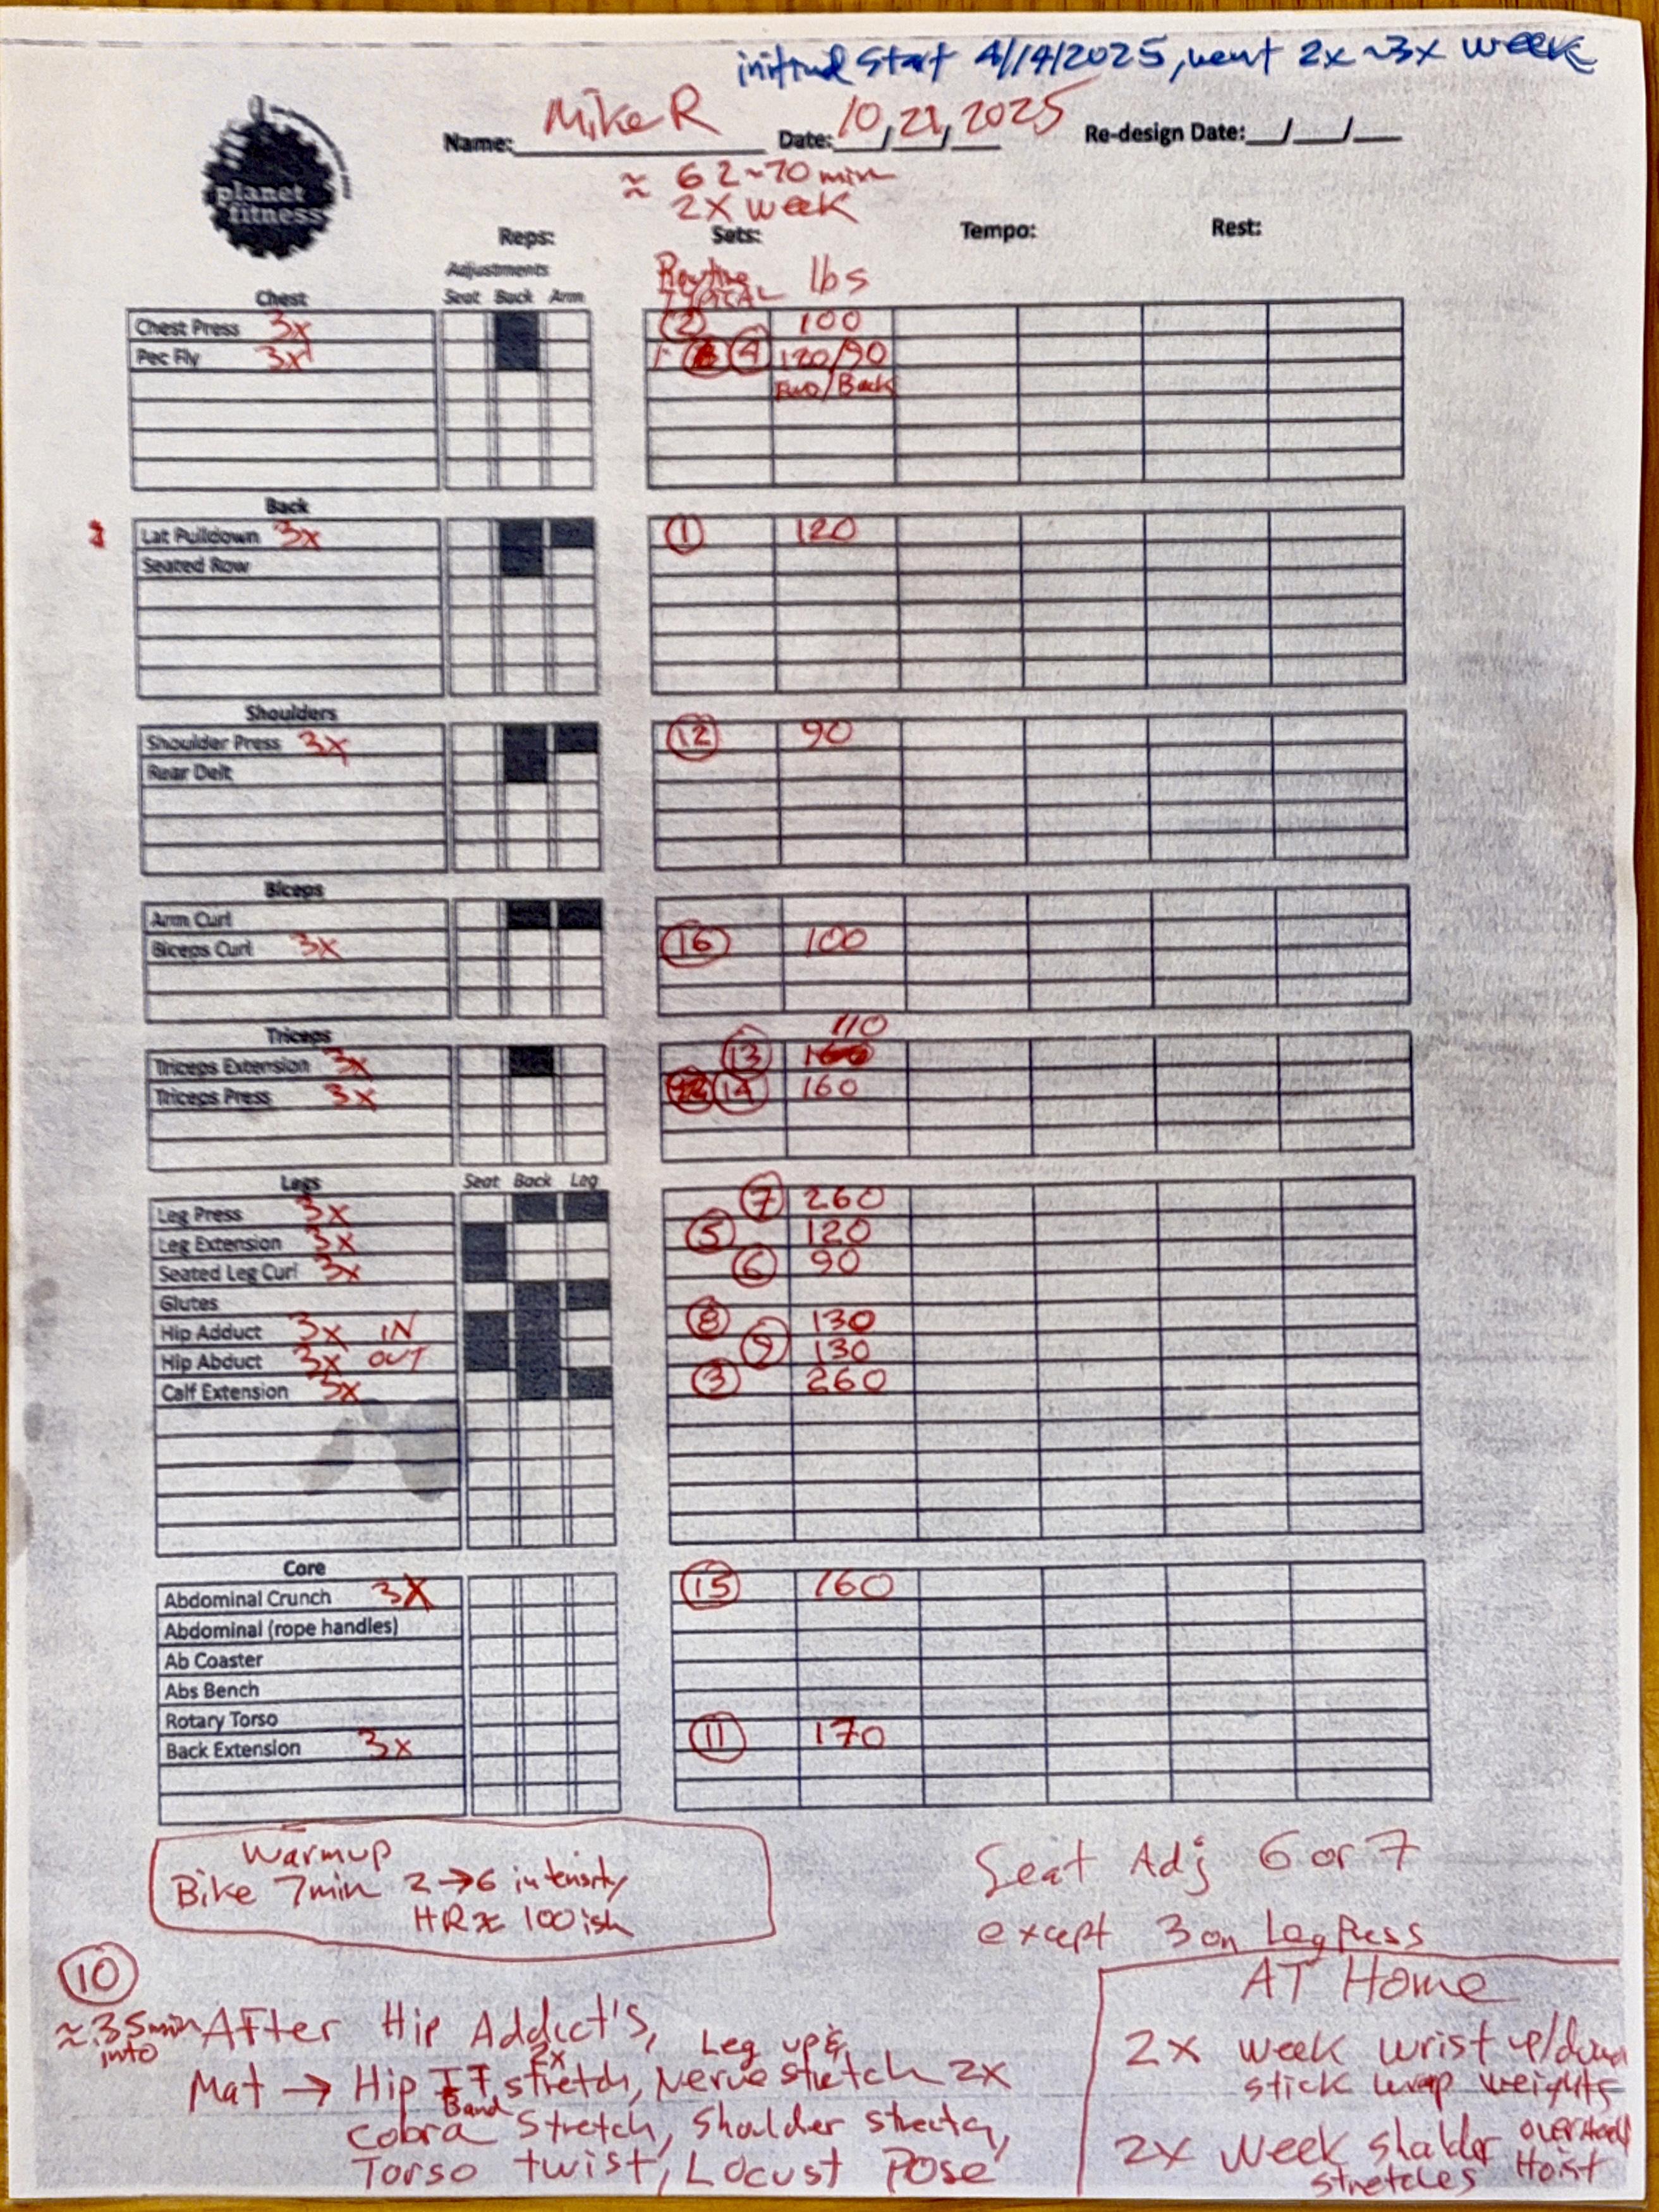 initial Start 4/14/2025, went 2x ~3x week
planet fitness
Name: Mike R Date: 10, 21, 2025 Re-design Date: __/__/__
≈ 62~70 min
2x week
Reps: Sets: Tempo: Rest:
Adjustments Routine lbs
Chest Seat Back Arm TYPICAL
Chest Press 3x (2) 100
Pec Fly 3x (4) 120/90
Fwd/Back
Back
Lat Pulldown 3x (1) 120
Seated Row
Shoulders
Shoulder Press 3x (12) 90
Rear Delt
Biceps
Arm Curl
Biceps Curl 3x (16) 100
Triceps 110
Triceps Extension 3x (13)
Triceps Press 3x (14) 160
Legs Seat Back Leg
Leg Press 3x (7) 260
Leg Extension 3x (5) 120
Seated Leg Curl 3x (6) 90
Glutes
Hip Adduct 3x IN (8) 130
Hip Abduct 3x OUT (9) 130
Calf Extension 3x (3) 260
Core
Abdominal Crunch 3x (15) 160
Abdominal (rope handles)
Ab Coaster
Abs Bench
Rotary Torso
Back Extension 3x (11) 170
Warmup
Bike 7min 2→6 intensity
HR≈ 100ish
Seat Adj 6 or 7
except 3 on Leg Press
(10)
≈35min into
After Hip Addict's, Leg up &
Mat → Hip IT Band stretch, 2x Nerve stretch 2x
Cobra Stretch, Shoulder stretch,
Torso twist, Locust Pose
AT Home
2x week wrist up/down
stick wrap weights
2x week shoulder overhead
stretches Hoist